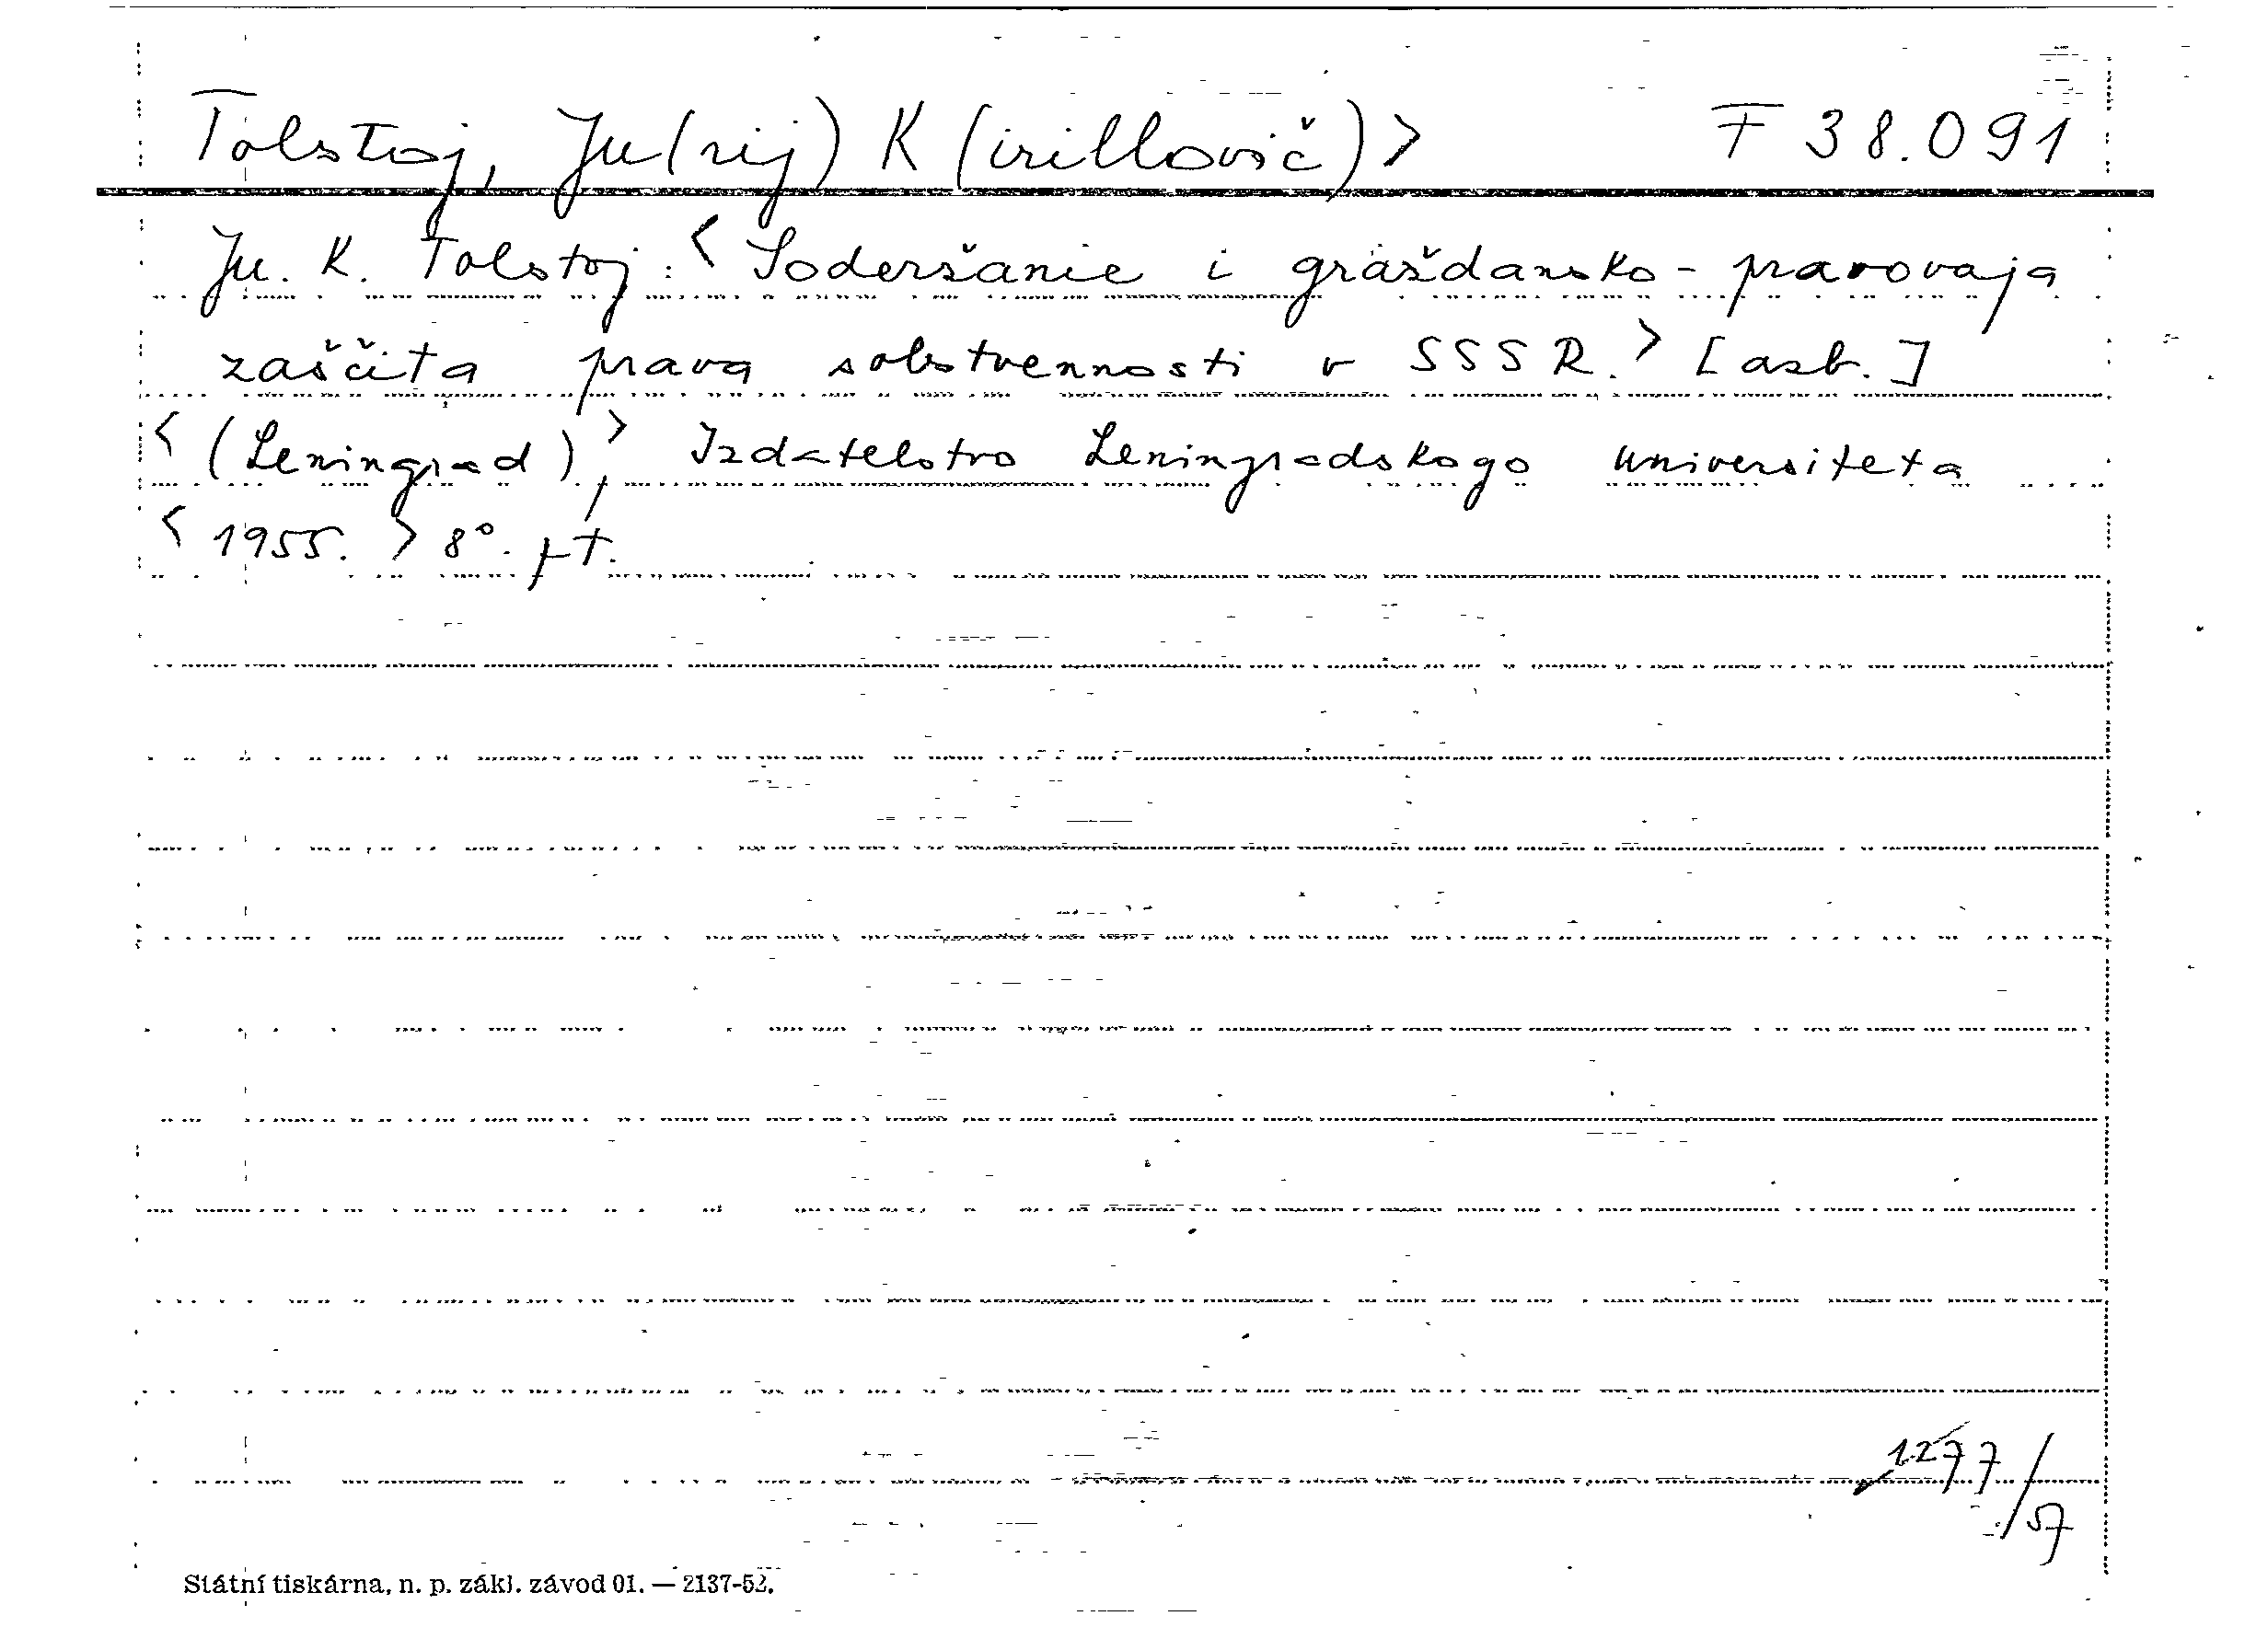 Tolstoj, Ju(rij) K(irillovič)> F 38.091
Ju. K. Tolstoj: <Soderšanie i graždansko-pravovaja
zaščita prava sobstvennosti v SSSR.> [azb.]
<(Leningrad),> Izdatelstvo Leningradskogo universiteta
<1955.> 8°. pt.
1277/57
Státní tiskárna, n. p. zákl. závod 01. — 2137-52.